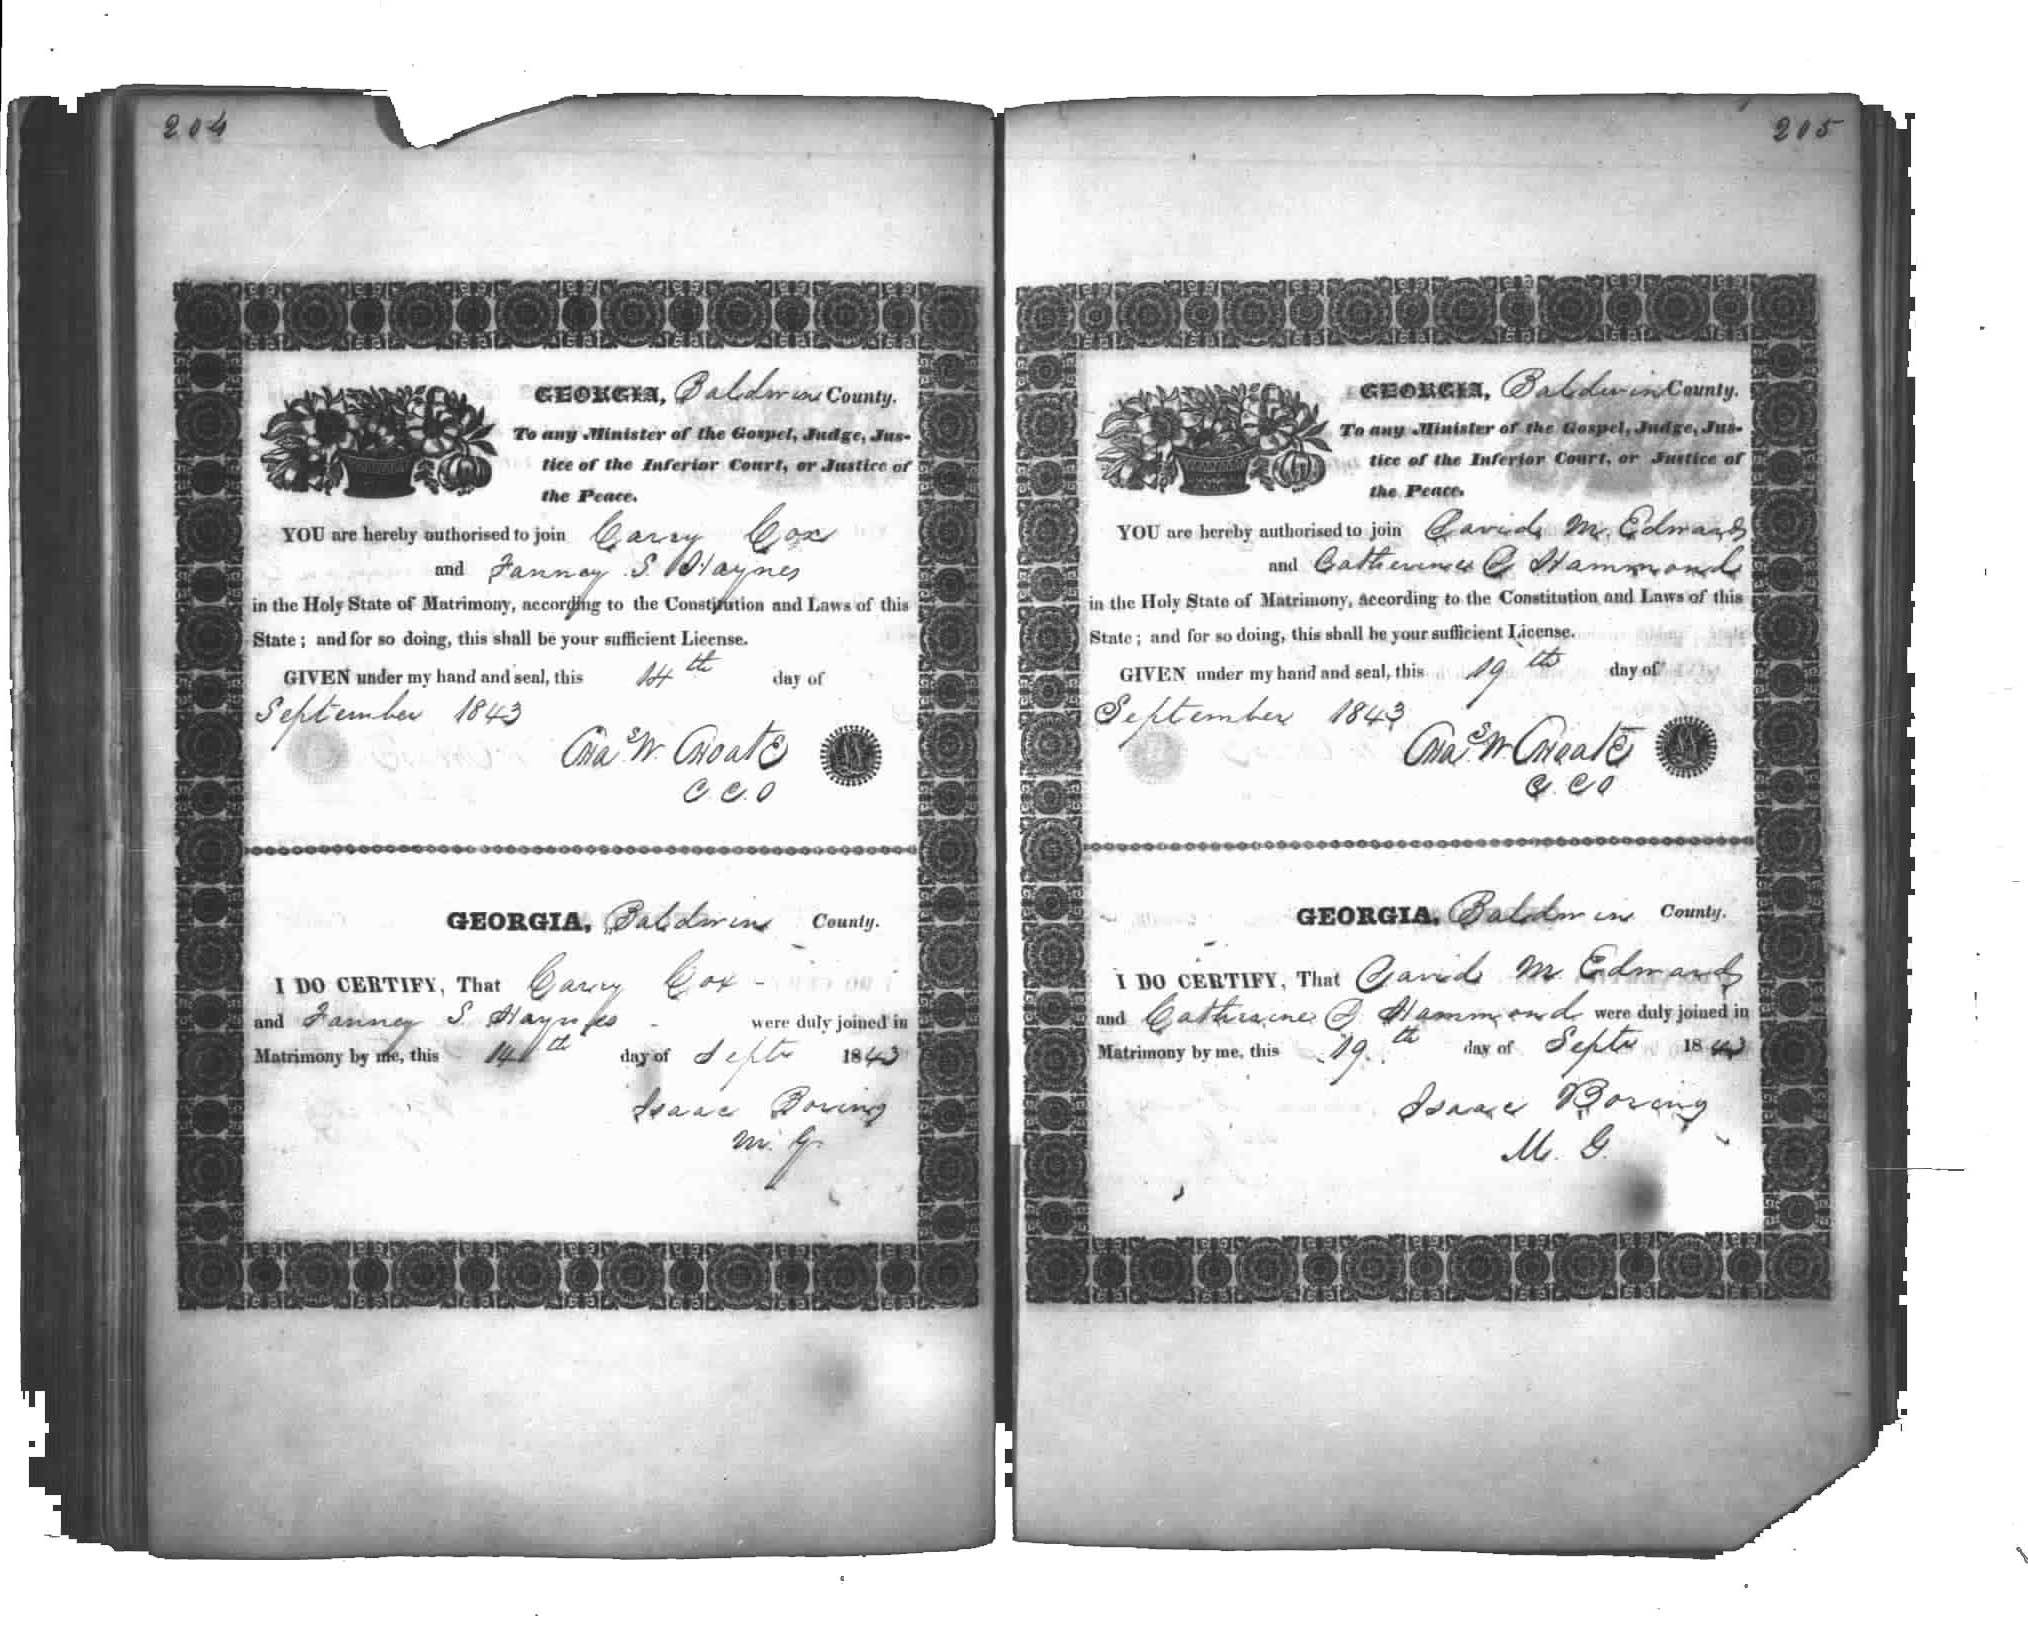 204
GEORGIA, Baldwin County.
To any Minister of the Gospel, Judge, Jus-
tice of the Inferior Court, or Justice of
the Peace.
YOU are hereby authorised to join Carey Cox
and Fanney S. Haynes
in the Holy State of Matrimony, according to the Constitution and Laws of this
State; and for so doing, this shall be your sufficient License.
GIVEN under my hand and seal, this 14th day of
September 1843
Chas. W. Choate
C. C. O
GEORGIA, Baldwin County.
I DO CERTIFY, That Carey Cox
and Fanney S. Haynes were duly joined in
Matrimony by me, this 14th day of Septr 1843
Isaac Boring
M. G.
205
GEORGIA, Baldwin County.
To any Minister of the Gospel, Judge, Jus-
tice of the Inferior Court, or Justice of
the Peace.
YOU are hereby authorised to join David M. Edwards
and Catherine Hammond
in the Holy State of Matrimony, according to the Constitution and Laws of this
State; and for so doing, this shall be your sufficient License.
GIVEN under my hand and seal, this 19th day of
September 1843
Chas. W. Choate
C. C O
GEORGIA, Baldwin County.
I DO CERTIFY, That David M Edwards
and Catherine Hammond were duly joined in
Matrimony by me, this 19.th day of Septr 1843
Isaac Boring
M. G.